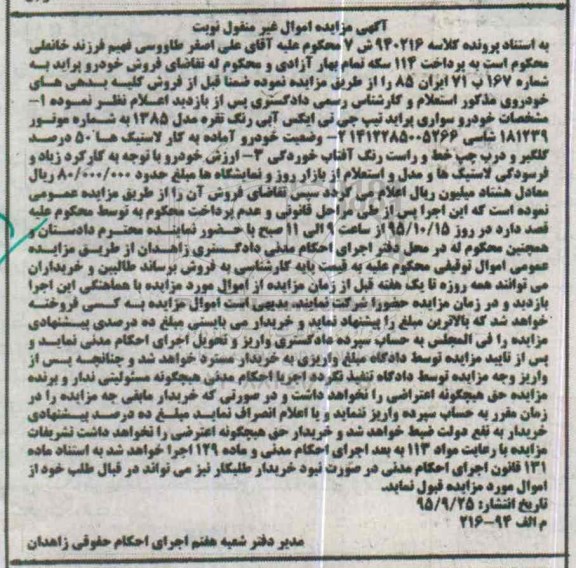 آگهی مزایده اموال غیر منقول نوبت
به استناد پرونده کلاسه ۹۴۰۲۱۶ ش ۷ محکوم علیه آقای علی اصغر طاووسی فهیم فرزند خانعلی
محکوم است به پرداخت ۱۱۴ سکه تمام بهار آزادی و محکوم له تقاضای فروش خودرو پراید به
شماره ۱۶۷ ب ۷۱ ایران ۸۵ را از طریق مزایده نموده ضمنا قبل از فروش کلیه بدهی های
خودروی مذکور استعلام و کارشناس رسمی دادگستری پس از بازدید اعلام نظر نموده ۱-
مشخصات خودرو سواری پراید تیپ جی تی ایکس آبی رنگ نقره مدل ۱۳۸۵ به شماره موتور
۱۸۱۲۳۹ شاسی ۱۴۱۲۲۸۵۰۰۵۲۶۶ ۲- وضعیت خودرو آماده به کار لاستیک ها ۵۰ درصد
گلگیر و درب چپ خط و راست رنگ آفتاب خوردگی ۳- ارزش خودرو با توجه به کارکرد زیاد و
فرسودگی لاستیک ها و مدل و استعلام از بازار روز و نمایشگاه ها مبلغ حدود ۸۰/۰۰۰/۰۰۰ ریال
معادل هشتاد میلیون ریال اعلام می گردد سپس تقاضای فروش آن را از طریق مزایده عمومی
نموده است که این اجرا پس از طی مراحل قانونی و عدم پرداخت محکوم به توسط محکوم علیه
قصد دارد در روز ۹۵/۱۰/۱۵ از ساعت ۹ الی ۱۱ صبح با حضور نماینده محترم دادستان و
همچنین محکوم له در محل دفتر اجرای احکام مدنی دادگستری زاهدان از طریق مزایده
عمومی اموال توقیفی محکوم علیه به قیمت پایه کارشناسی به فروش برساند طالبین و خریداران
می توانند همه روزه تا یک هفته قبل از زمان مزایده از اموال مورد مزایده با هماهنگی این اجرا
بازدید و در زمان مزایده حضورا شرکت نمایند. بدیهی است اموال مزایده به کسی فروخته
خواهد شد که بالاترین مبلغ را پیشنهاد نماید و خریدار می بایستی مبلغ ده درصدی پیشنهادی
مزایده را فی المجلس به حساب سپرده دادگستری واریز و تحویل اجرای احکام مدنی نماید و
پس از تایید مزایده توسط دادگاه مبلغ واریزی به خریدار مسترد خواهد شد و چنانچه پس از
واریز وجه مزایده توسط دادگاه تنفیذ نگردد اجرا احکام مدنی هیچگونه مسئولیتی ندار و برنده
مزایده حق هیچگونه اعتراضی را نخواهد داشت و در صورتی که خریدار مابقی چه مزایده را در
زمان مقرر به حساب سپرده واریز ننماید و یا اعلام انصراف نماید مبلغ ده درصد پیشنهادی
خریدار به نفع دولت ضبط خواهد شد و خریدار حق هیچگونه اعترضی را نخواهد داشت تشریفات
مزایده با رعایت مواد ۱۱۳ به بعد اجرای احکام مدنی و ماده ۱۲۹ اجرا خواهد شد به استناد ماده
۱۳۱ قانون اجرای احکام مدنی در صورت نبود خریدار طلبکار نیز می تواند در قبال طلب خود از
اموال مورد مزایده قبول نماید.
تاریخ انتشار: ۹۵/۹/۲۵
م الف ۹۴-۲۱۶
مدیر دفتر شعبه هفتم اجرای احکام حقوقی زاهدان